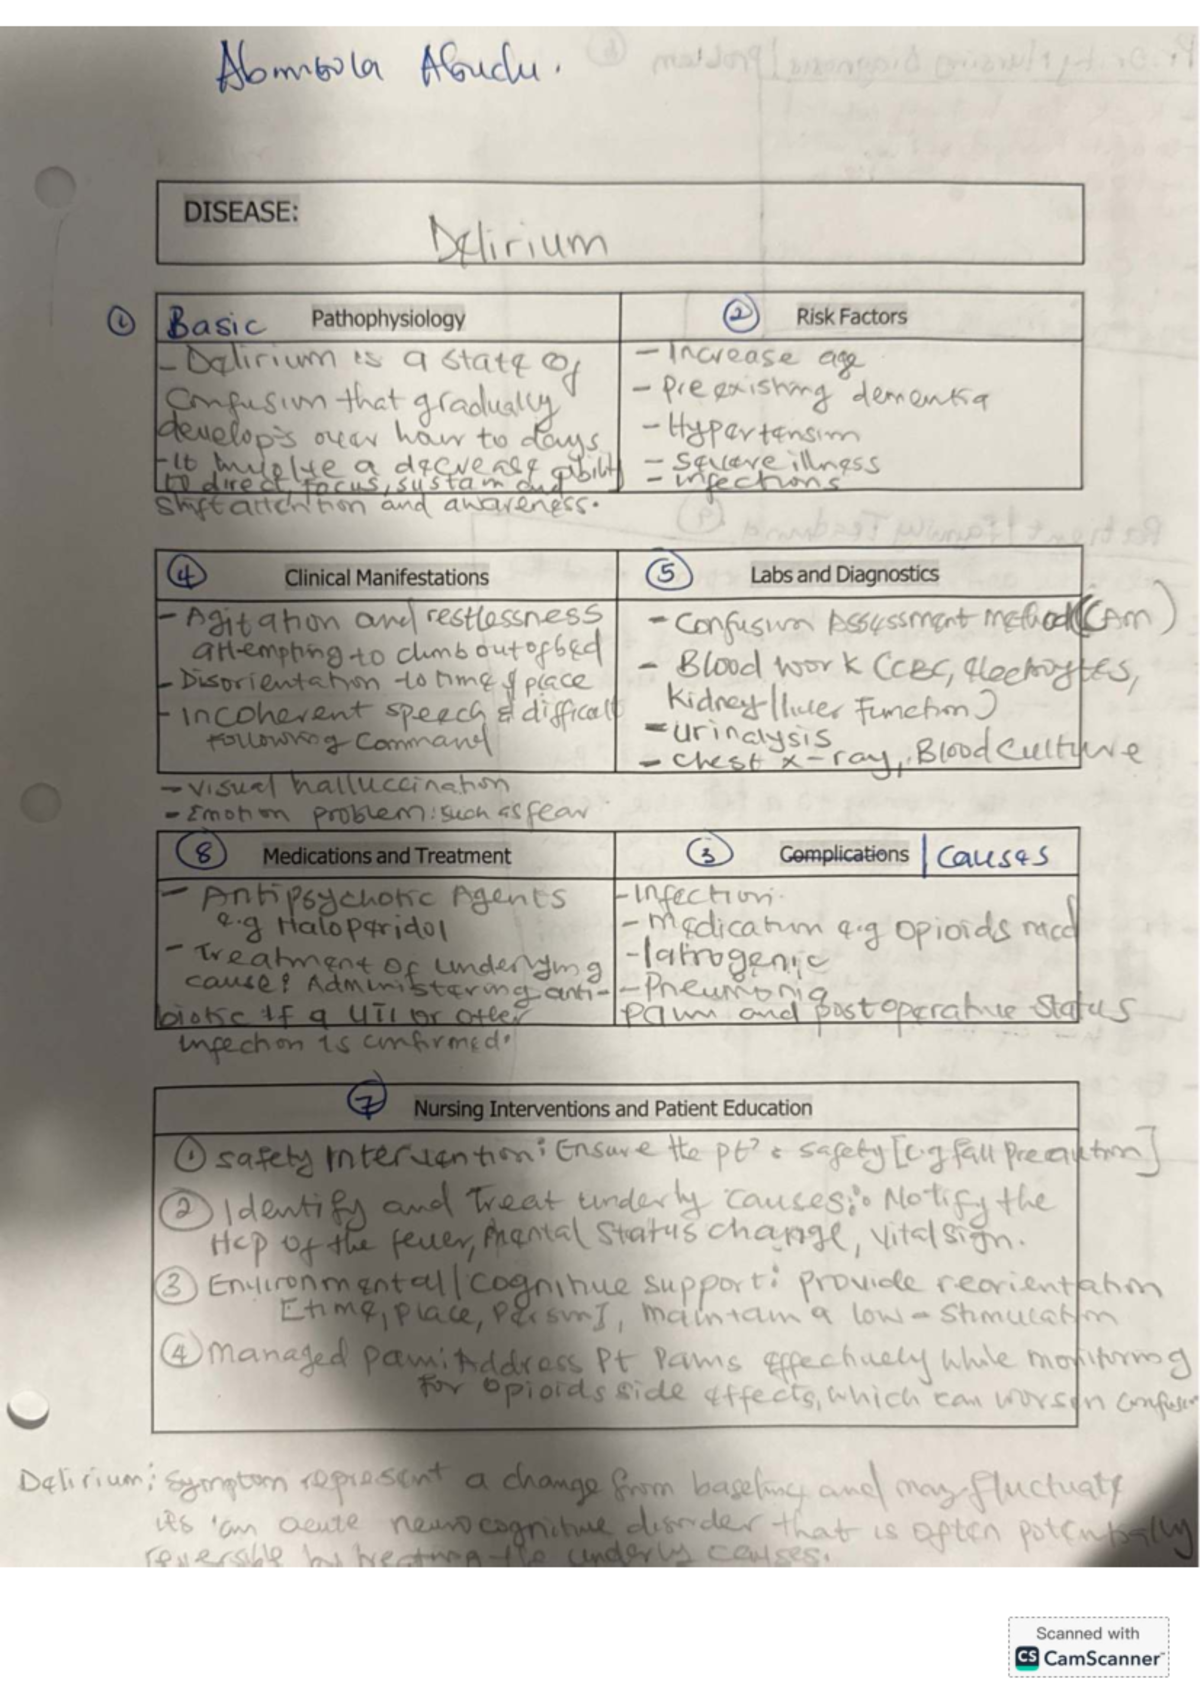 Abimbola Abudu.
DISEASE:
Delirium
① Basic Pathophysiology
- Delirium is a state of
confusion that gradually
develop's over hour to days
- It involve a decrease ability
to direct, focus, sustain and
shift attention and awareness.
② Risk Factors
- Increase age
- Pre existing dementia
- Hypertension
- Severe illness
- infections
④ Clinical Manifestations
- Agitation and restlessness
attempting to climb out of bed
- Disorientation to time & place
- Incoherent speech & difficult
following Command
- Visual halluccination
- Emotion problem: such as fear
⑤ Labs and Diagnostics
- Confusion Assessment method (CAM)
- Blood work (CBC, electrolytes,
kidney/liver Function)
- urinalysis
- chest x-ray, Blood Culture
⑧ Medications and Treatment
- Antipsychotic Agents
e.g Haloperidol
- Treatment of underlying
cause: Administering anti-
biotic if a UTI or other
infection is confirmed.
③ Complications | Causes
- Infection.
- medication e.g opioids med
- Iatrogenic
- Pneumonia
Pain and postoperative status
⑦ Nursing Interventions and Patient Education
① safety Intervention: Ensure the pt's safety [e.g fall precaution]
② Identify and Treat underly causes: Notify the
Hcp of the fever, mental status change, vital sign.
③ Environmental/cognitive support: provide reorientation
[time, place, person], maintain a low-stimulation
④ managed pain: Address Pt Pains effectively while monitoring
for opioids side effects, which can worsen confusion
Delirium: symptom represent a change from baseline and may fluctuate
its an acute neurocognitive disorder that is often potentially
reversible by treating the underly causes.
Scanned with
CS CamScanner